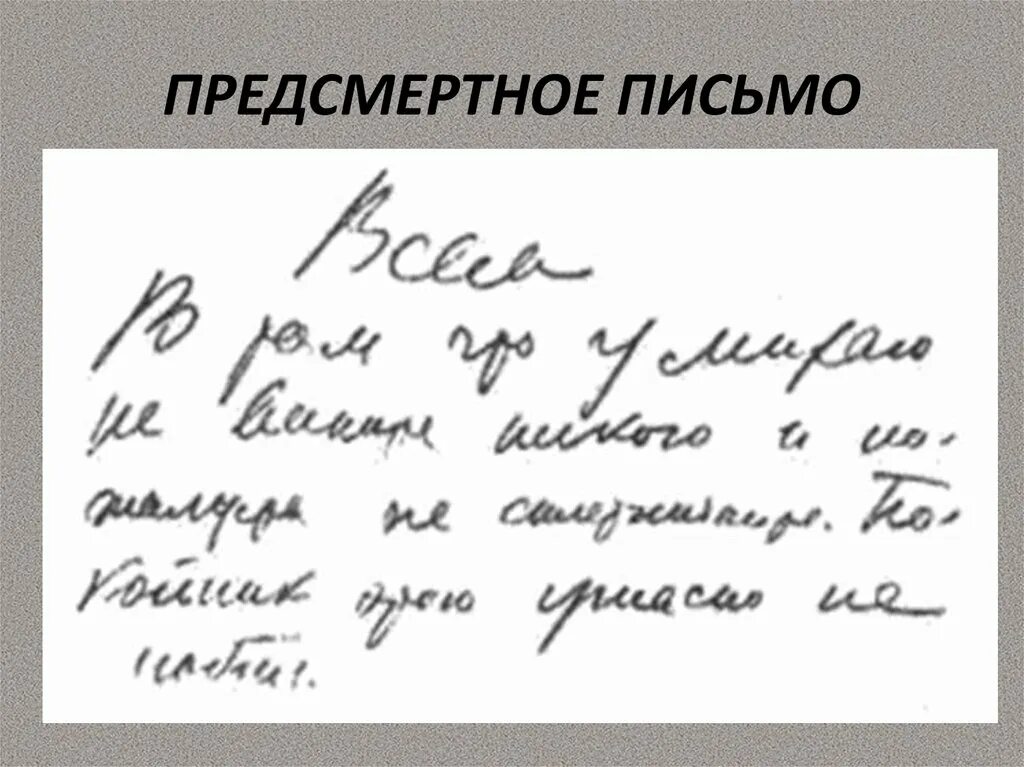 ПРЕДСМЕРТНОЕ ПИСЬМО
Всем
В том что умираю
не вините никого и по-
жалуйста не сплетничайте. По-
койник этого ужасно не
любил.